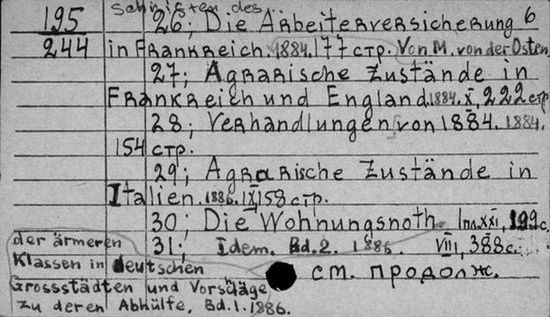 Schriften des
195 26; Die Arbeiterversicherung 6
244 in Frankreich. 1884. 177 стр. Von M. von der Osten
27; Agrarische Zustände in
Frankreich und England 1884. X, 222 стр
28; Verhandlungen von 1884. 1884.
154 стр.
29; Agrarische Zustände in
Italien. 1886. IX 158 стр.
30; Die Wohnungsnoth 1 пл. XXI, 199 с.
der ärmeren 31; Idem. Bd. 2. 1886. VIII, 388 с.
Klassen in deutschen см. продолж.
Grossstädten und Vorschläge
zu deren Abhülfe, Bd. 1. 1886.